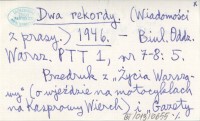 Dwa rekordy. (Wiadomości
z prasy.) 1946. – Biul. Odda.
Warsz. PTT 1, nr 7-8: 5.
Przedruk z "Życia Warsza-
wy" (o wjeździe na motocyklach
na Kasprowy Wierch) i "Gazety